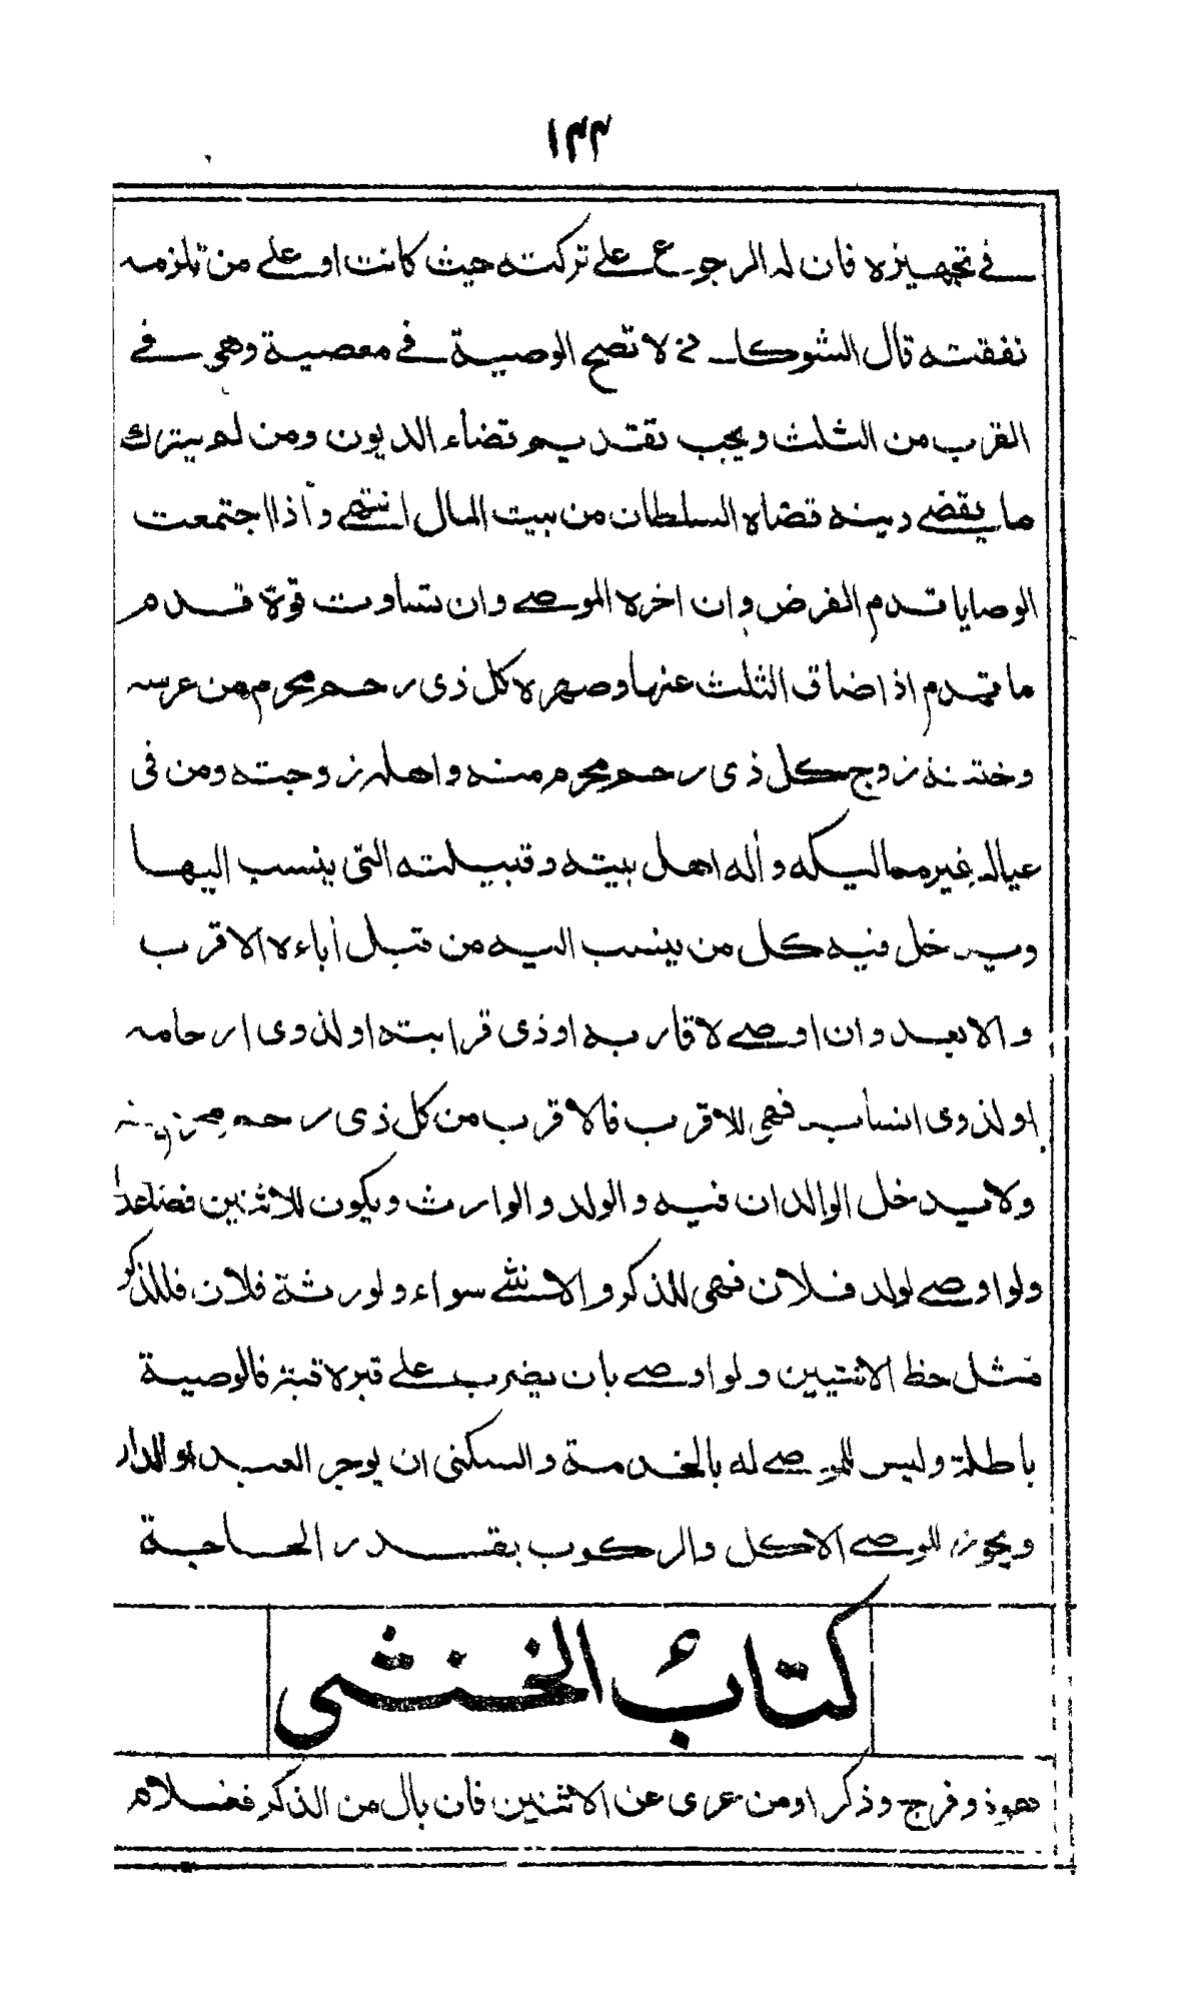 ١٣٣
في تجهيزه فان له الرجوع على تركته حيث كانت او على من تلزمه
نفقته قال الشوكاني لا تصح الوصية في معصية وهي في
القرب من الثلث ويجب تقديم قضاء الديون ومن لم يترك
ما يقضي دينه قضاه السلطان من بيت المال انتهى وأذا اجتمعت
الوصايا قدم الفرض وان اخره الموصي وان تساوت قوة قدم
ما قدم اذا ضاق الثلث عنها وصهره كل ذي رحم محرم من عرسه
وختنه زوج كل ذي رحم محرم منه واهله زوجته ومن في
عياله غير مماليكه وأله اهل بيته وقبيلته التي ينسب اليها
ويدخل فيه كل من ينسب اليه من قبل أباءه الاقرب
والابعد وان اوصى لاقاربه او ذي قرابته او لذوي ارحامه
او لذوي انسابه فهي للاقرب فالاقرب من كل ذي رحم محرم منه
ولا يدخل الوالدان فيه والولد والوارث ويكون للاثنين فصاعدا
ولو اوصى لولد فلان فهي للذكر والانثى سواء ولورثة فلان فللذكر
مثل حظ الانثيين ولو اوصى بان يضرب على قبره قبة فالوصية
باطلة وليس للموصى له بالخدمة والسكنى ان يوجر العبد او الدار
ويجوز للوصي الاكل والركوب بقدر الحاجة
كتاب الخنثى
هو ذو فرج وذكر او من عري عن الاثنين فان بال من الذكر فغلام